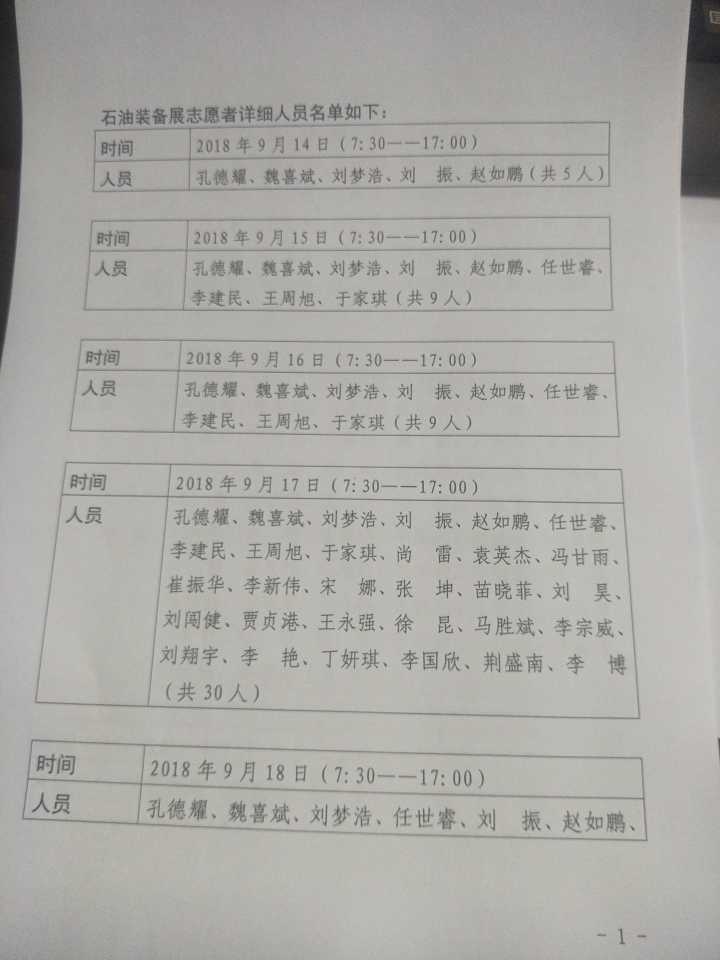 石油装备展志愿者详细人员名单如下：
时间 2018年9月14日（7:30——17:00）
人员 孔德耀、魏喜斌、刘梦浩、刘　振、赵如鹏（共5人）
时间 2018年9月15日（7:30——17:00）
人员 孔德耀、魏喜斌、刘梦浩、刘　振、赵如鹏、任世睿、
李建民、王周旭、于家琪（共9人）
时间 2018年9月16日（7:30——17:00）
人员 孔德耀、魏喜斌、刘梦浩、刘　振、赵如鹏、任世睿、
李建民、王周旭、于家琪（共9人）
时间 2018年9月17日（7:30——17:00）
人员 孔德耀、魏喜斌、刘梦浩、刘　振、赵如鹏、任世睿、
李建民、王周旭、于家琪、尚　雷、袁英杰、冯甘雨、
崔振华、李新伟、宋　娜、张　坤、苗晓菲、刘　昊、
刘闯健、贾贞港、王永强、徐　昆、马胜斌、李宗威、
刘翔宇、李　艳、丁妍琪、李国欣、荆盛南、李　博
（共30人）
时间 2018年9月18日（7:30——17:00）
人员 孔德耀、魏喜斌、刘梦浩、任世睿、刘　振、赵如鹏、
- 1 -